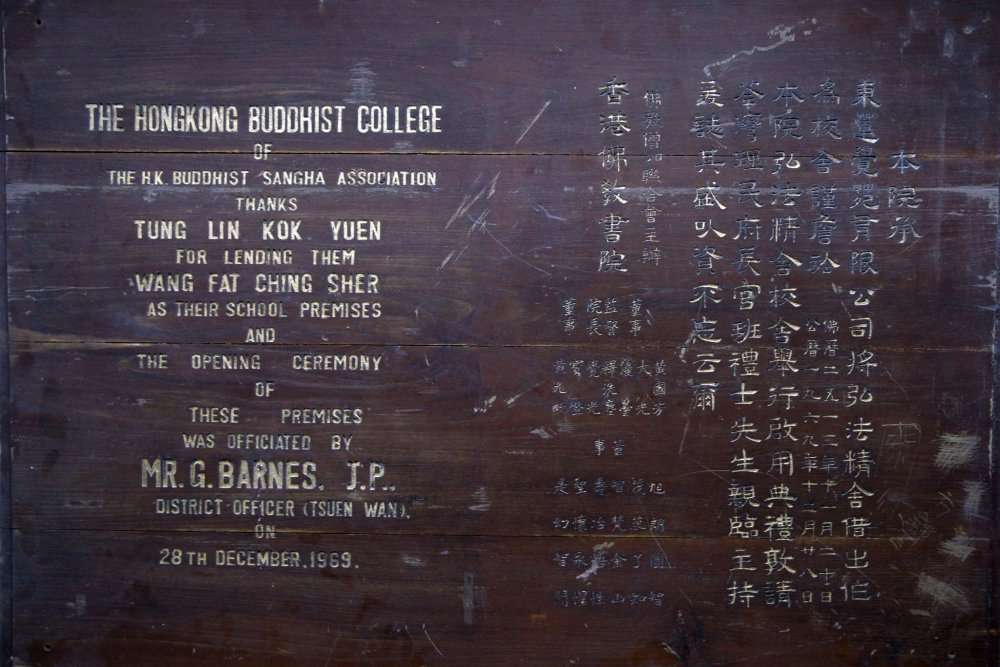 THE HONGKONG BUDDHIST COLLEGE
OF
THE H.K. BUDDHIST SANGHA ASSOCIATION
THANKS
TUNG LIN KOK YUEN
FOR LENDING THEM
WANG FAT CHING SHER
AS THEIR SCHOOL PREMISES
AND
THE OPENING CEREMONY
OF
THESE PREMISES
WAS OFFICIATED BY
MR. G. BARNES. J.P..
DISTRICT OFFICER (TSUEN WAN),
ON
28TH DECEMBER.1969.
本院承
東蓮覺苑有限公司將弘法精舍借出作
為校舍謹詹於
佛曆二五一三年十一月二十日
公曆一九六九年十二月廿八日
本院弘法精舍校舍舉行啟用典禮敦請
荃灣理民府長官班禮士先生親臨主持
爰誌其盛以資不忘云爾
佛教僧伽聯合會主辦
香港佛教書院
董事
監督
院長
董事